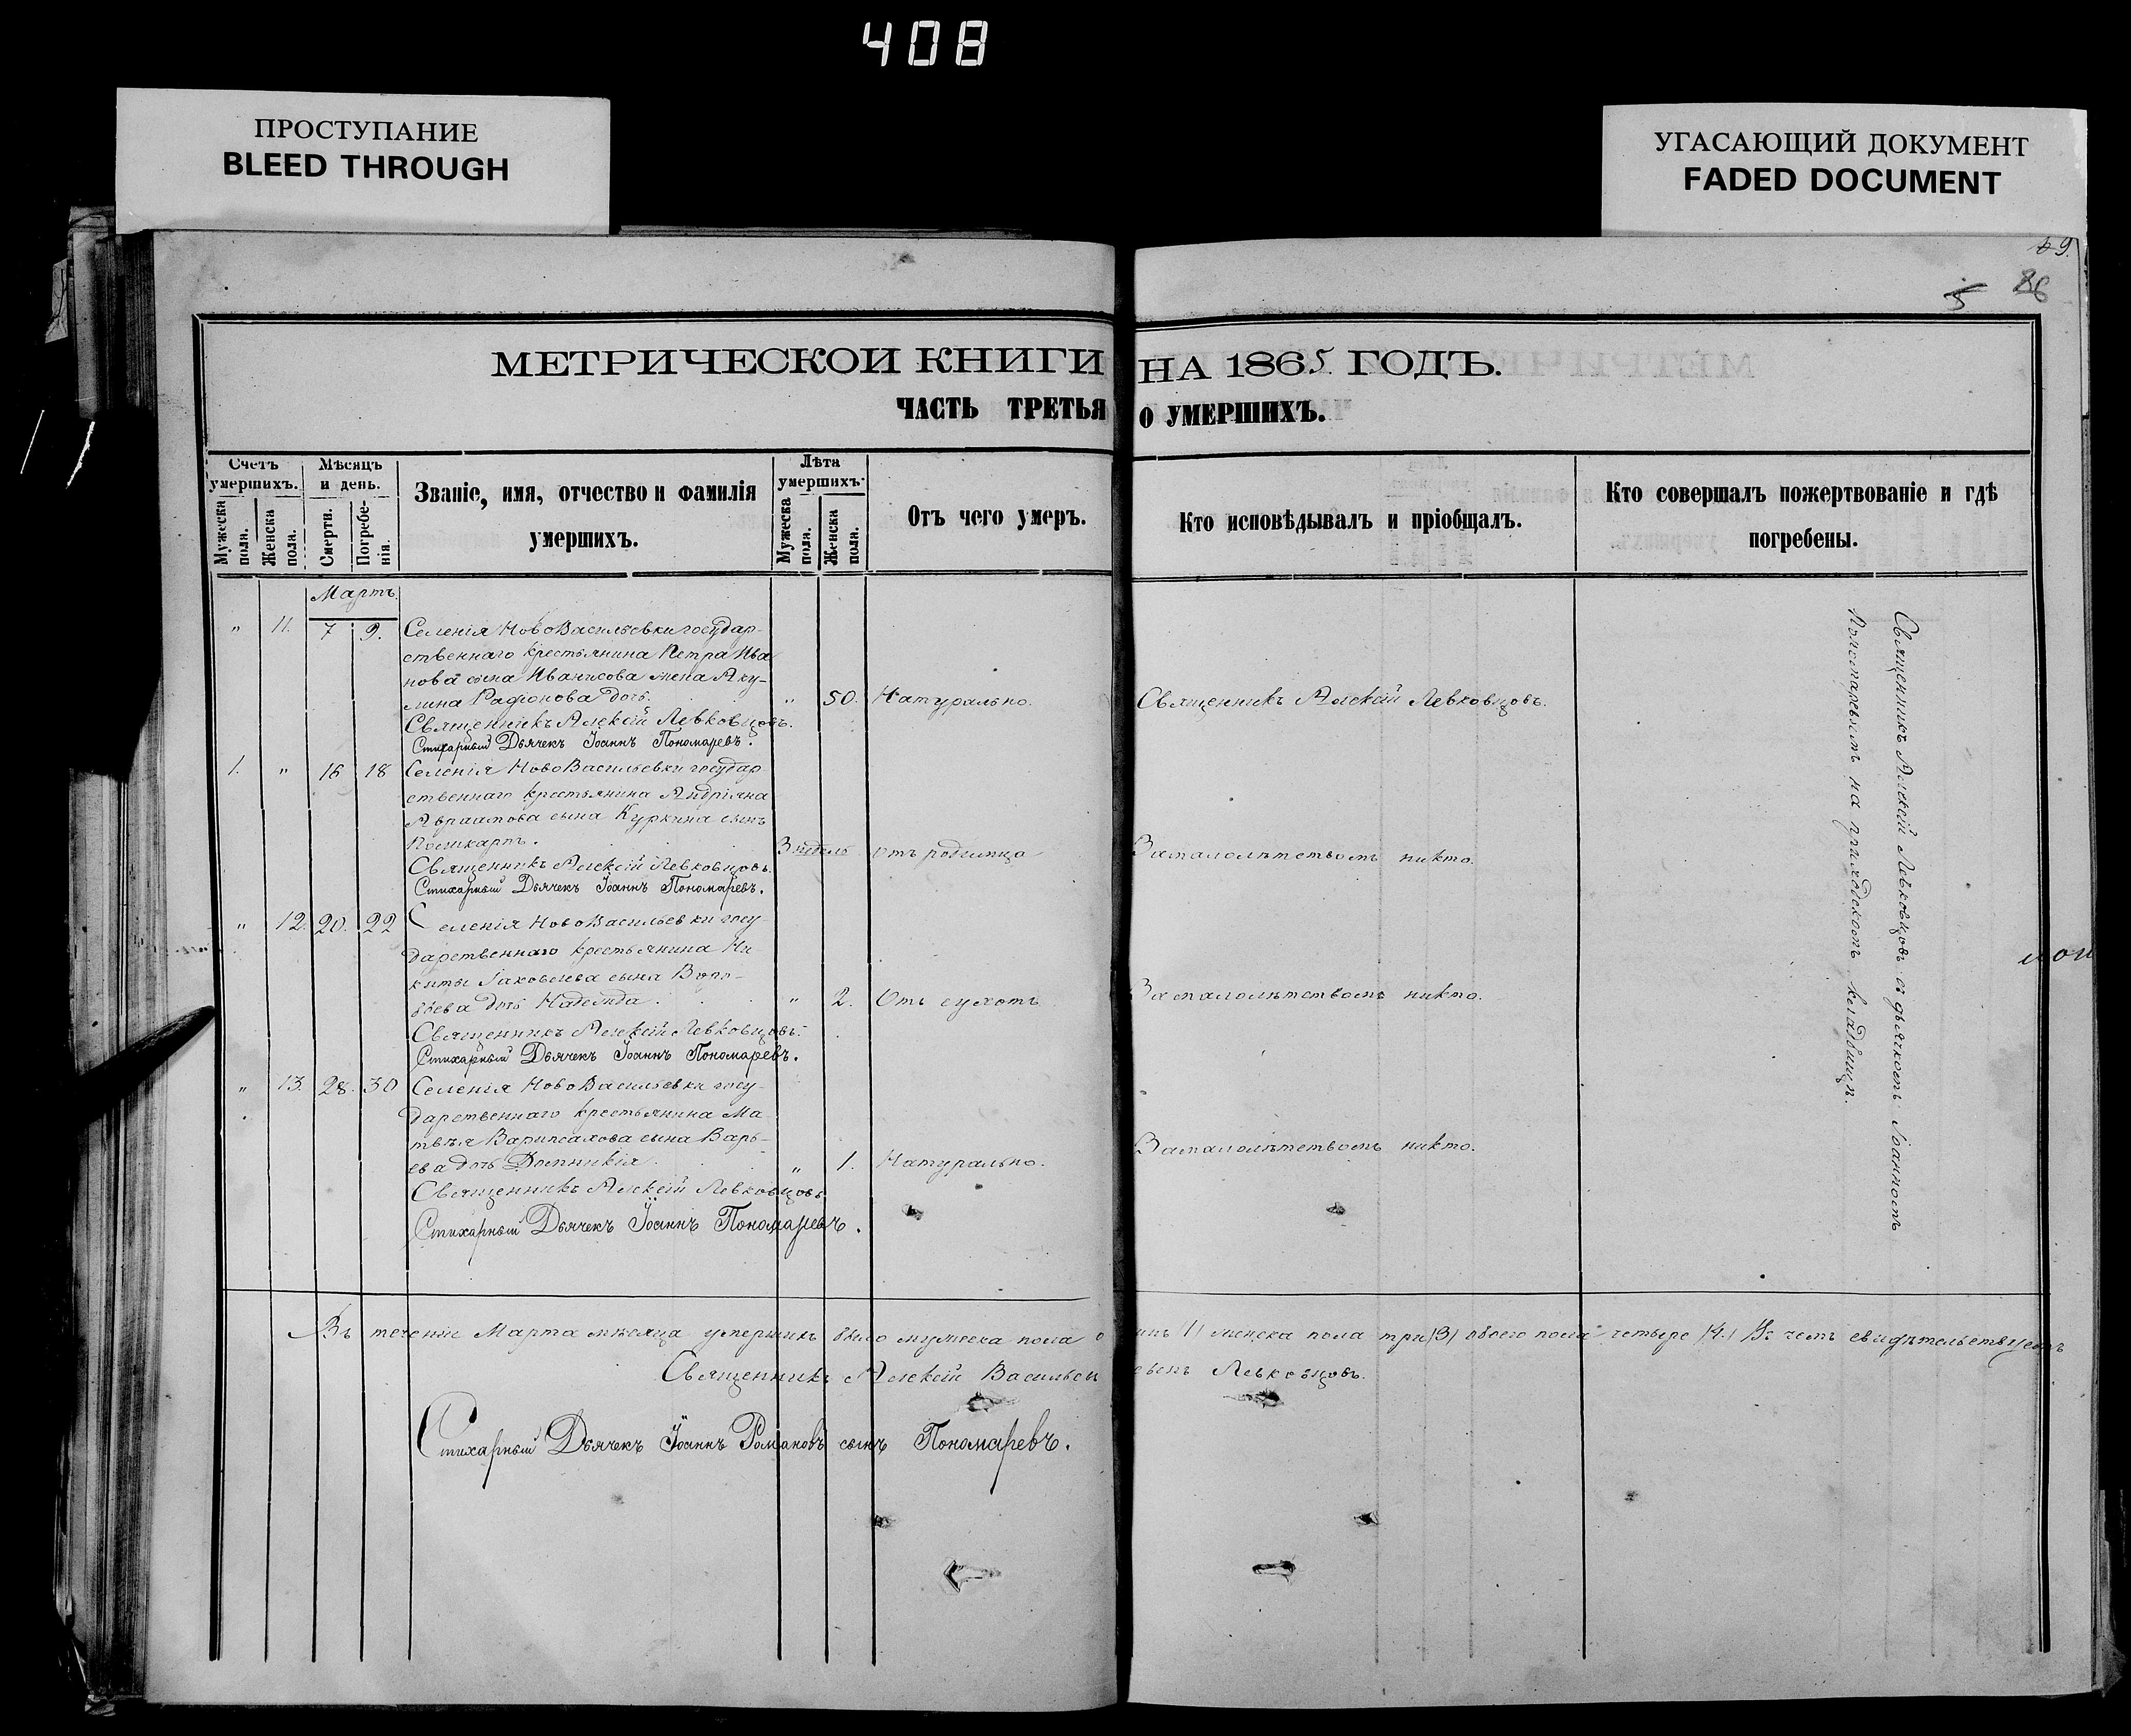 408
ПРОСТУПАНИЕ
BLEED THROUGH
УГАСАЮЩИЙ ДОКУМЕНТ
FADED DOCUMENT
МЕТРИЧЕСКОЙ КНИГИ НА 1865 ГОДЪ.
ЧАСТЬ ТРЕТЬЯ О УМЕРШИХЪ.
Счетъ умершихъ.
Мужеска пола.
Женска пола.
Мѣсяцъ и день.
Смерти.
Погребенія.
Званіе, имя, отчество и фамилія умершихъ.
Лѣта умершихъ.
Мужеска пола.
Женска пола.
Отъ чего умеръ.
Кто исповѣдывалъ и пріобщалъ.
Кто совершалъ пожертвованіе и гдѣ погребены.
Мартъ.
" 11. 7 9. Селенія НовоВасильевки государ-
ственнаго крестьянина Петра Ива
нова сына Иванисова жена Аку-
лина Радіонова дочь. " 50. Натурально. Священникъ Алексій Левковцовъ.
Священникъ Алексій Левковцовъ.
Стихарный Дьячекъ Іоаннъ Пономаревъ.
1. " 16 18 Селенія НовоВасильевки государ
ственнаго крестьянина Андріяна
Авраамова сына Куркина сынъ
3 недель отъ родимца За малолѣтствомъ никто.
Священникъ Алексій Левковцовъ.
Стихарный Дьячекъ Іоаннъ Пономаревъ.
" 12. 20. 22 Селенія НовоВасильевки госу-
дарственнаго крестьянина Ни
киты Іаковлева сына Воро-
бьева дочь Надежда. " 2. Отъ сухотъ За малолѣтствомъ никто.
Священникъ Алексій Левковцовъ.
Стихарный Дьячекъ Іоаннъ Пономаревъ.
" 13. 28. 30 Селенія НовоВасильевки госу-
дарственнаго крестьянина Ма
твѣя сына
дочь Домникія. " 1. Натурально. За малолѣтствомъ никто.
Священникъ Алексій Левковцовъ.
Стихарный Дьячекъ Іоаннъ Пономаревъ.
Священникъ Алексій Левковцовъ съ дьячкомъ Іоанномъ
Пономаревымъ на приходскомъ кладбищѣ.
Въ теченіи Марта мѣсяца умершихъ было мужеска пола одинъ /1/ женска пола три /3/ обоего пола четыре /4./ Въ чемъ свидѣтельствуемъ
Священникъ Алексій Васильевъ сынъ Левковцовъ.
Стихарный Дьячекъ Іоаннъ Романовъ сынъ Пономаревъ.